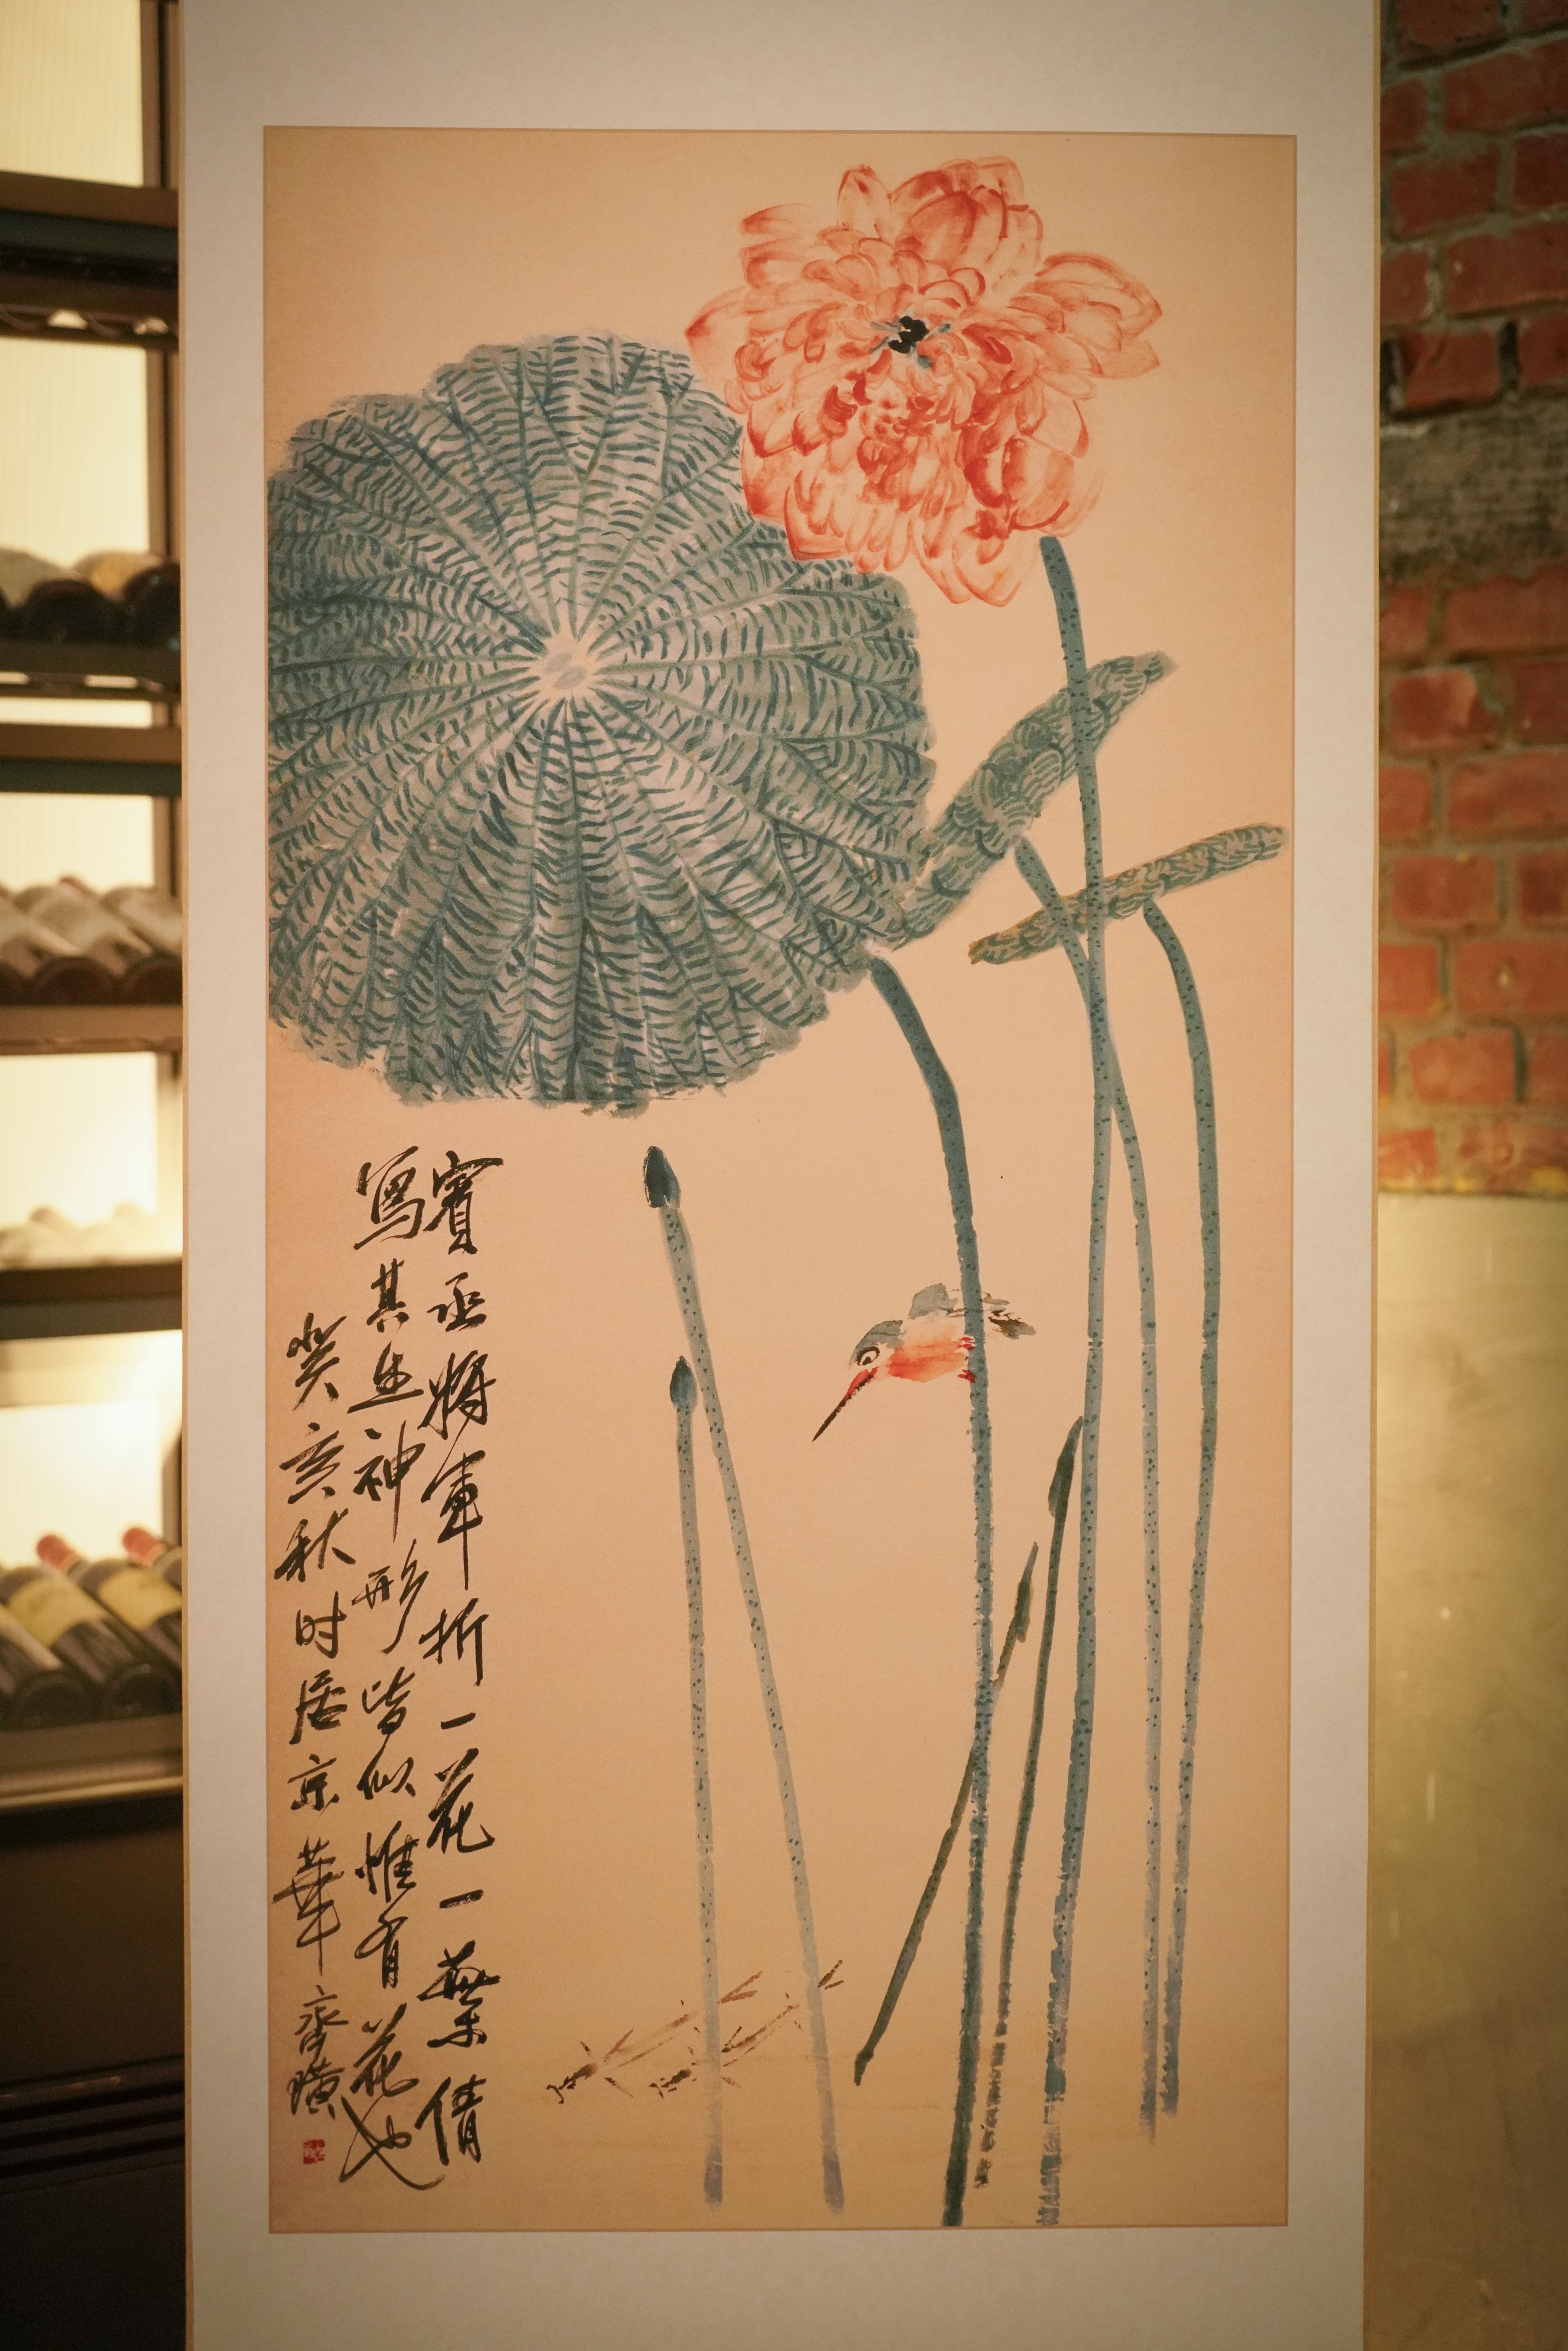 賓丞將軍折一花一葉倩
寫其生神形皆似惟有花也
癸亥秋时居京華齊璜